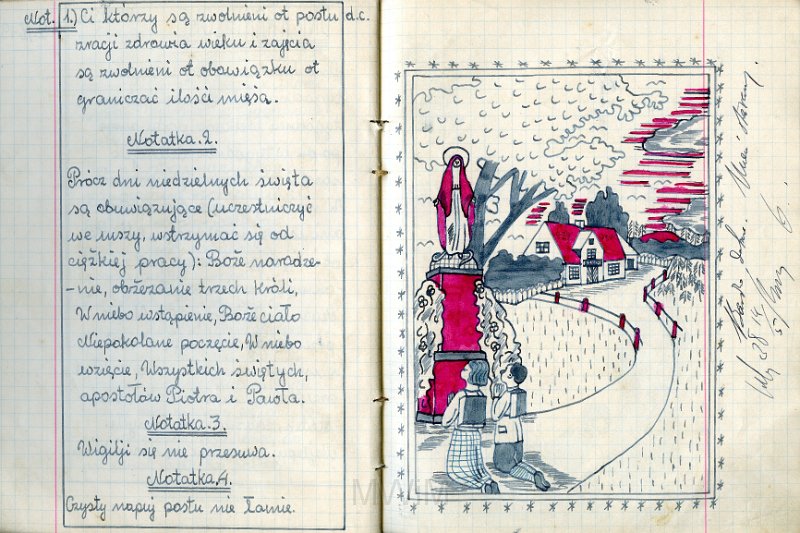 Not. 1.) Ci którzy są zwolnieni ot postu d.c.
zracji zdrowia wieku i zajęcia
są zwolnieni ot obowiązku ot
graniczać ilość mięsa.
Notatka.2.
Prócz dni niedzielnych święta
są obowiązujące (uczestniczyć
we mszy, wstrzymać się od
ciężkiej pracy): Boże narodze-
-nie, obrzezanie trzech Króli,
W niebo wstąpienie, Boże ciało
Niepokolane poczęcie, W niebo
wzięcie, Wszystkich świętych,
apostołów Piotra i Pawła.
Notatka.3.
Wigilji się nie przesuwa.
Notatka.4.
Czysty napuj postu nie łamie.
Bardo dobre.
MWM